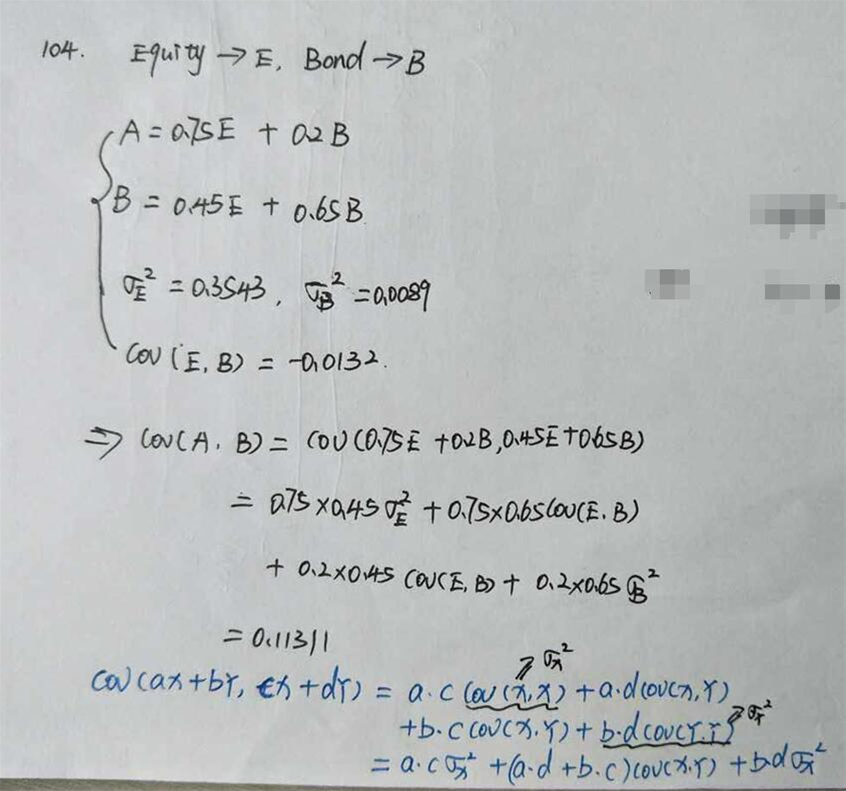 104. Equity → E, Bond → B
A = 0.75E + 0.2B
B = 0.45E + 0.65B
σ_E² = 0.3543, σ_B² = 0.0089
Cov(E, B) = -0.0132.
⇒ Cov(A, B) = Cov(0.75E + 0.2B, 0.45E + 0.65B)
= 0.75 × 0.45 σ_E² + 0.75 × 0.65 Cov(E, B)
+ 0.2 × 0.45 Cov(E, B) + 0.2 × 0.65 σ_B²
= 0.11311
⇗ σ_x²
Cov(ax + bY, cx + dY) = a·c Cov(x, x) + a·d Cov(x, Y)
+ b·c Cov(x, Y) + b·d Cov(Y, Y) ⇗ σ_Y²
= a·c σ_x² + (a·d + b·c) Cov(x, Y) + b·d σ_x²